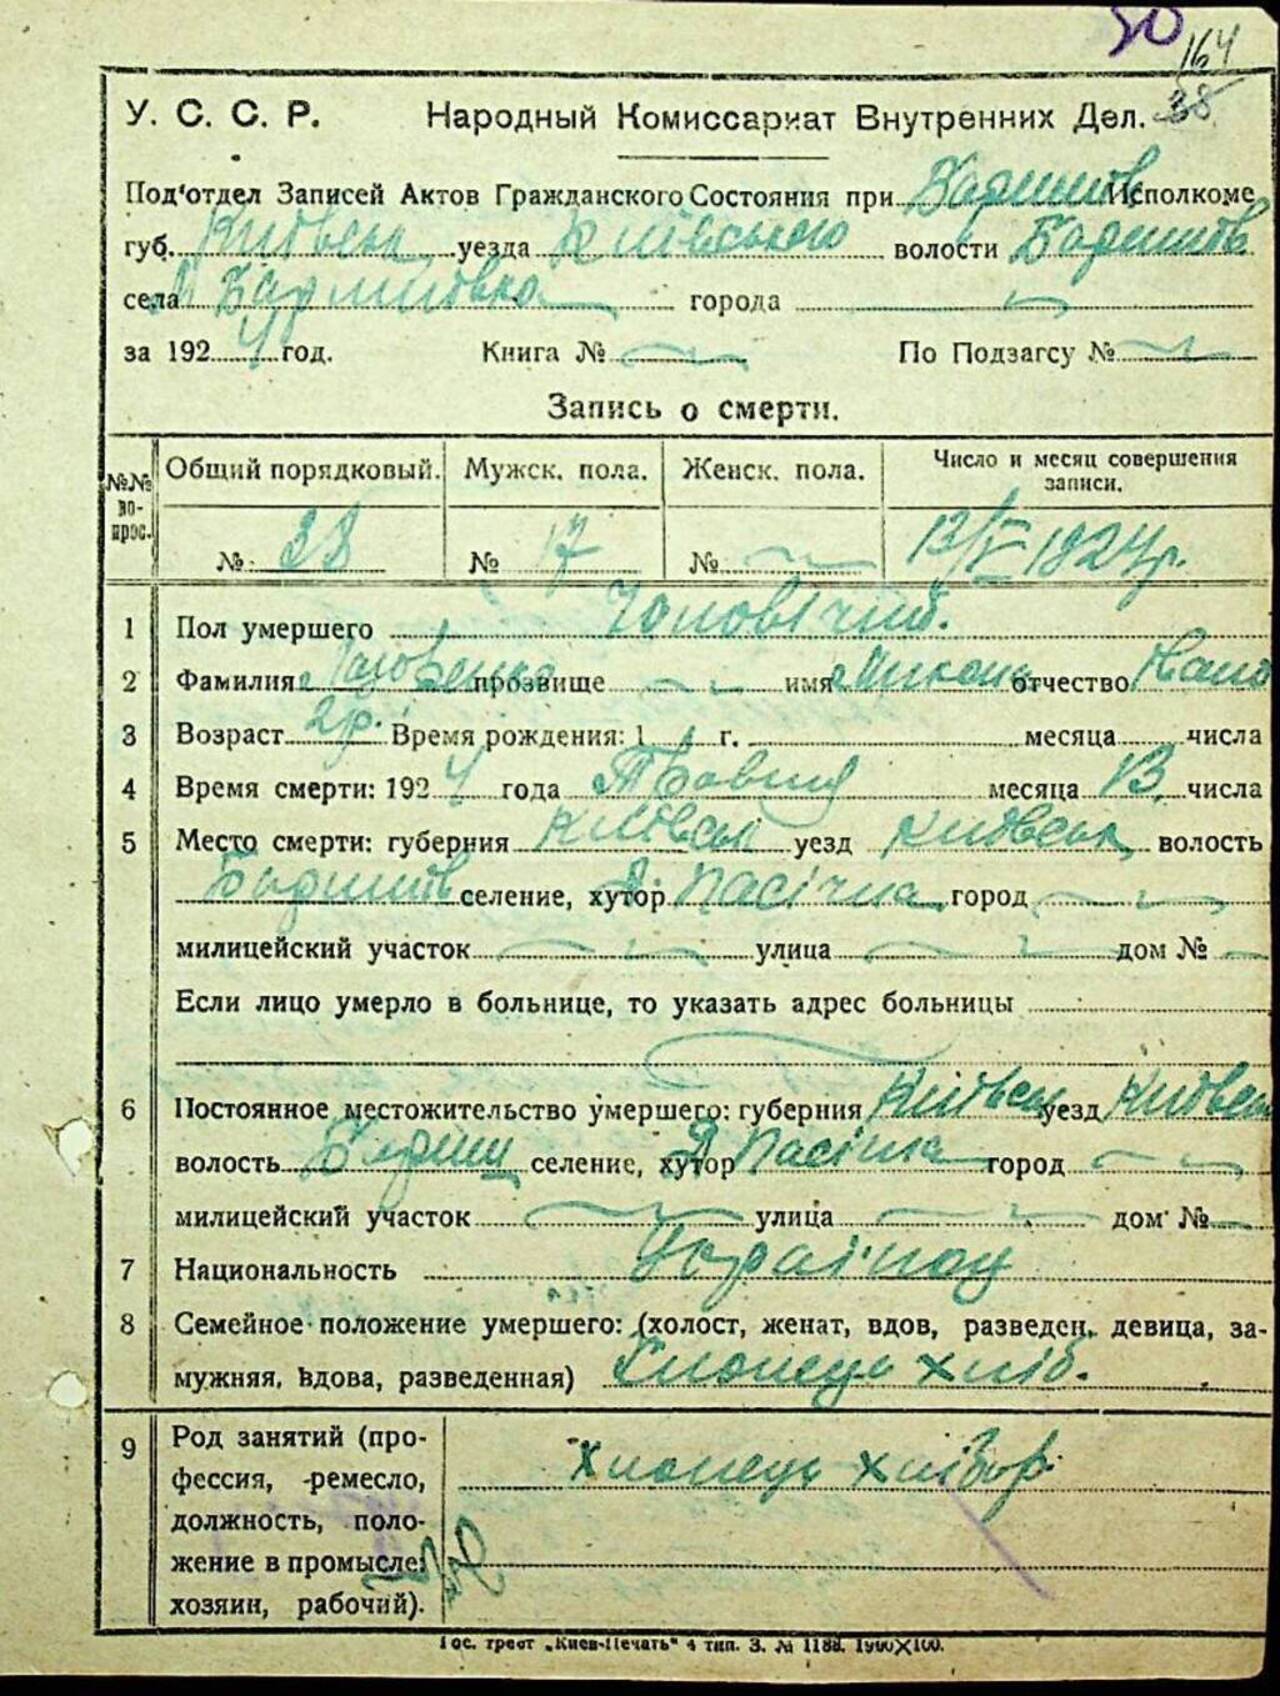 50
164
38
У. С. С. Р. Народный Комиссариат Внутренних Дел.
Под'отдел Записей Актов Гражданского Состояния при Баришів Исполкоме
губ. Київськ уезда Київського волости Баришів
села М Баришівка города
за 1924 год. Книга № По Подзагсу №
Запись о смерти.
№№ вопрос. Общий порядковый. Мужск. пола. Женск. пола. Число и месяц совершения записи.
№ 38 № 17 № 13/V 1924р.
1 Пол умершего Чоловічий.
2 Фамилия прозвище имя Микола отчество Івано
3 Возраст 2р. Время рождения: 1 г. месяца числа
4 Время смерти: 1924 года Травня месяца 13 числа
5 Место смерти: губерния Київськ уезд Київськ волость
Баришів селение, хутор Д. Пасічна город
милицейский участок улица дом №
Если лицо умерло в больнице, то указать адрес больницы
6 Постоянное местожительство умершего: губерния Київськ уезд Київськ
волость Бариш селение, хутор Д Пасічна город
милицейский участок улица дом №
7 Национальность
8 Семейное положение умершего: (холост, женат, вдов, разведен, девица, за-
мужняя, вдова, разведенная) Хлопець хліб.
9 Род занятий (про-
фессия, ремесло,
должность, поло-
жение в промысле:
хозяин, рабочий).
Хлопець хлібор.
Гос. трест „Киев-Печать" 4 тип. З. № 1188. 1900X100.